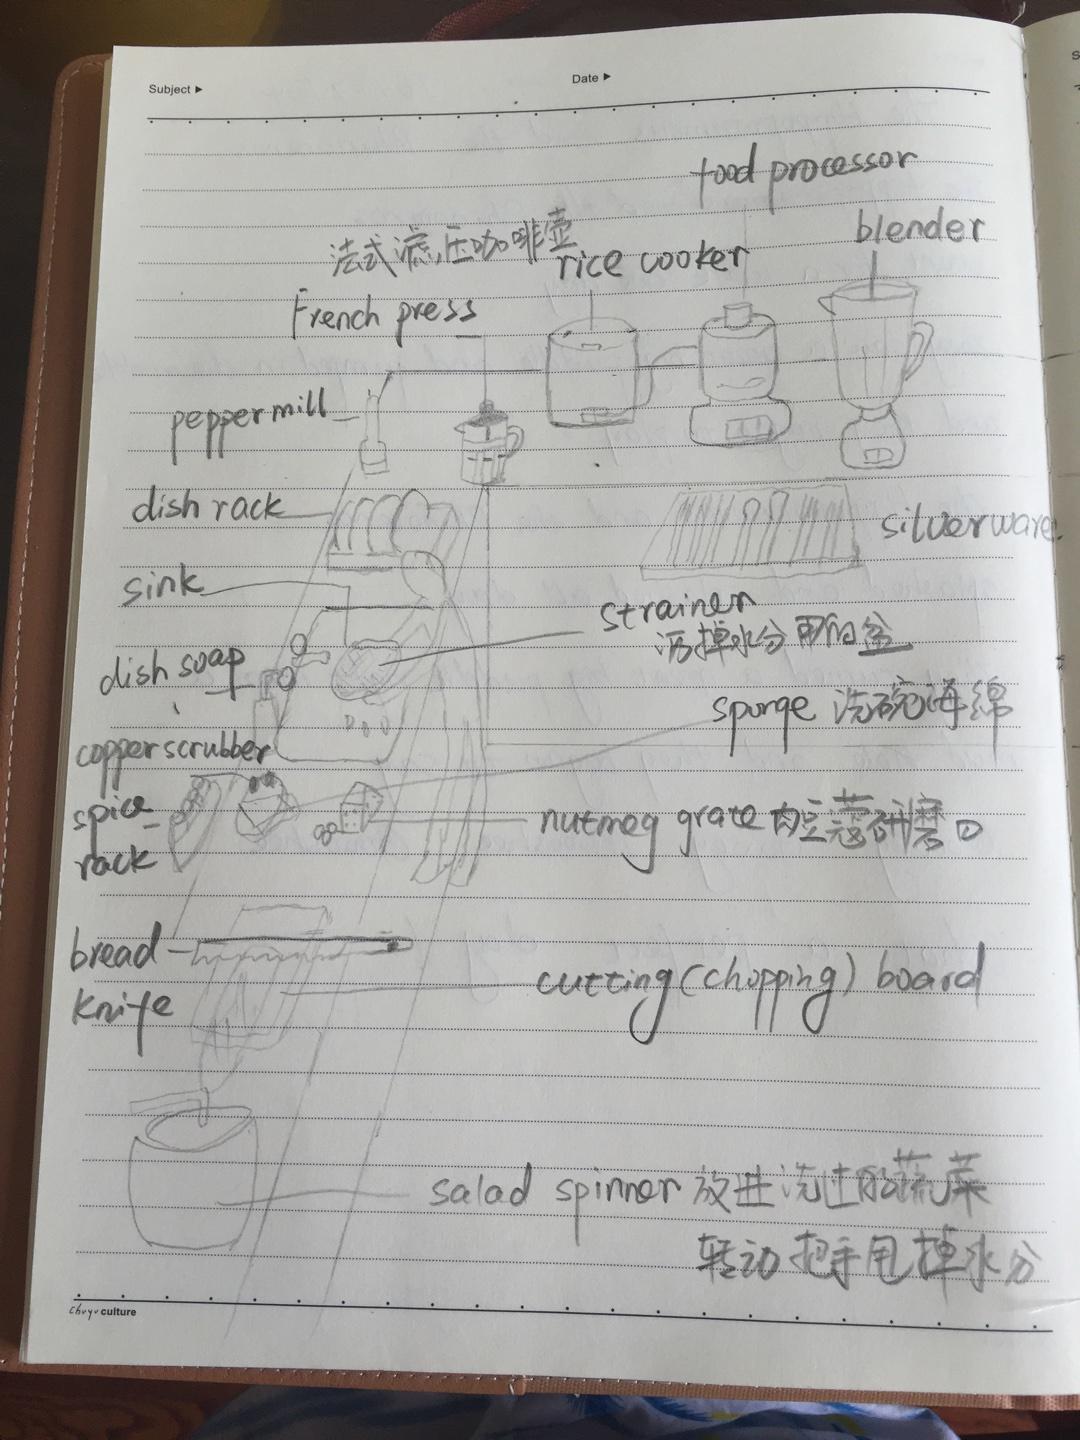 Subject ▶
Date ▶
food processor
blender
法式滤压咖啡壶
rice cooker
French press
peppermill
dish rack
silverware
sink
strainer
沥掉水分用的盆
dish soap
sponge 洗碗海绵
copper scrubber
spice
rack
nutmeg grate 肉豆蔻研磨口
bread
knife
cutting (chopping) board
salad spinner 放进洗过的蔬菜
转动把手甩掉水分
chuyu culture